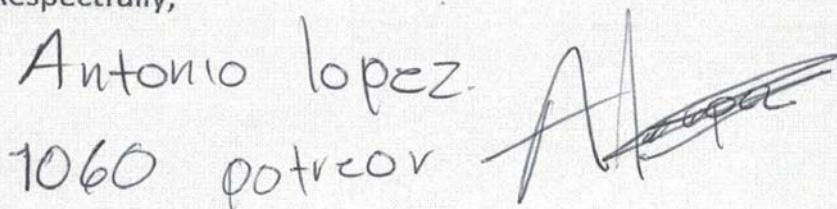 Respectfully,
Antonio lopez.
1060 potreor